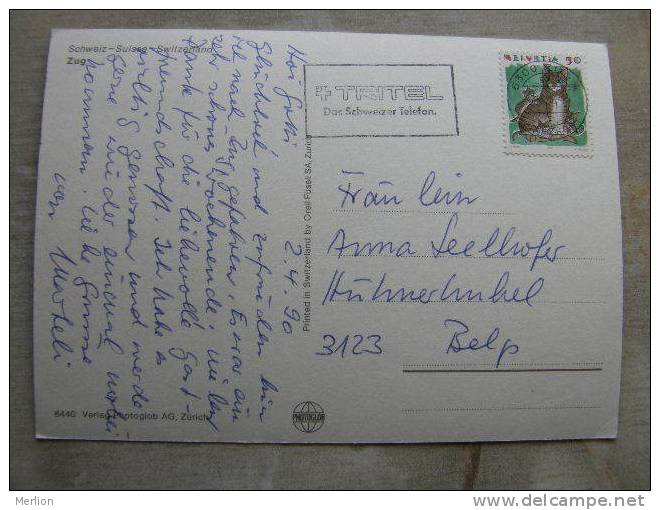 Schweiz - Suisse - Switzerland
Zug
2.4.90
Hoi Gotti
Glücklich und zufrieden bin
ich nach Zug gefahren. Es war ein
sehr schönes Wochenende. vielen
Danke für die liebevolle Gast-
freundschaft. Ich habe es
richtig genossen und werde
gerne wieder einmal
kommen. Liebe Grüsse
von
6440 Verlag Photoglob AG, Zürich
Printed in Switzerland by Orell Füssli SA, Zürich
PHOTOGLOB
+ TRITEL
Das Schweizer Telefon.
6300
HELVETIA 50
Fräulein
Anna Seelhofer
Hühnerhubel
3123 Belp
Merlion
http://www.delcampe.net